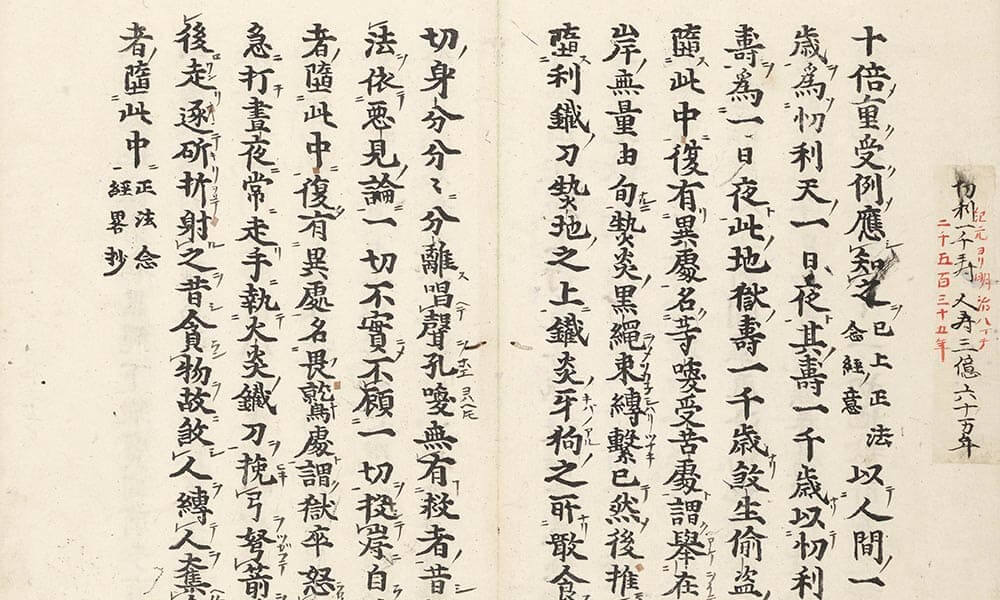 紀元ヨリ明治八マテ
二千五百三十五年
忉利一千寿 人寿三億六十万年
十倍重受例應知之 已上正法念經意 以人間一
歳爲忉利天一日夜其壽一千歳以忉利
壽爲一日夜此地獄壽一千歳煞生偷盗
墮此中復有異處名等喚受苦處謂舉在
岸無量由旬熱炎黒繩束縛繋已然後推
墮利鐵刀熱地之上鐵炎牙狗之所噉食
切身分分〻分離唱聲孔喚無有救者昔
法依惡見論一切不實不顧一切投岸自
者墮此中復有異處名畏鷲處謂獄卒怒
急打晝夜常走手執火炎鐵刀挽弓弩箭
後走逐斫折射之昔貪物故煞人縛人奪
者墮此中 正法念經畧抄